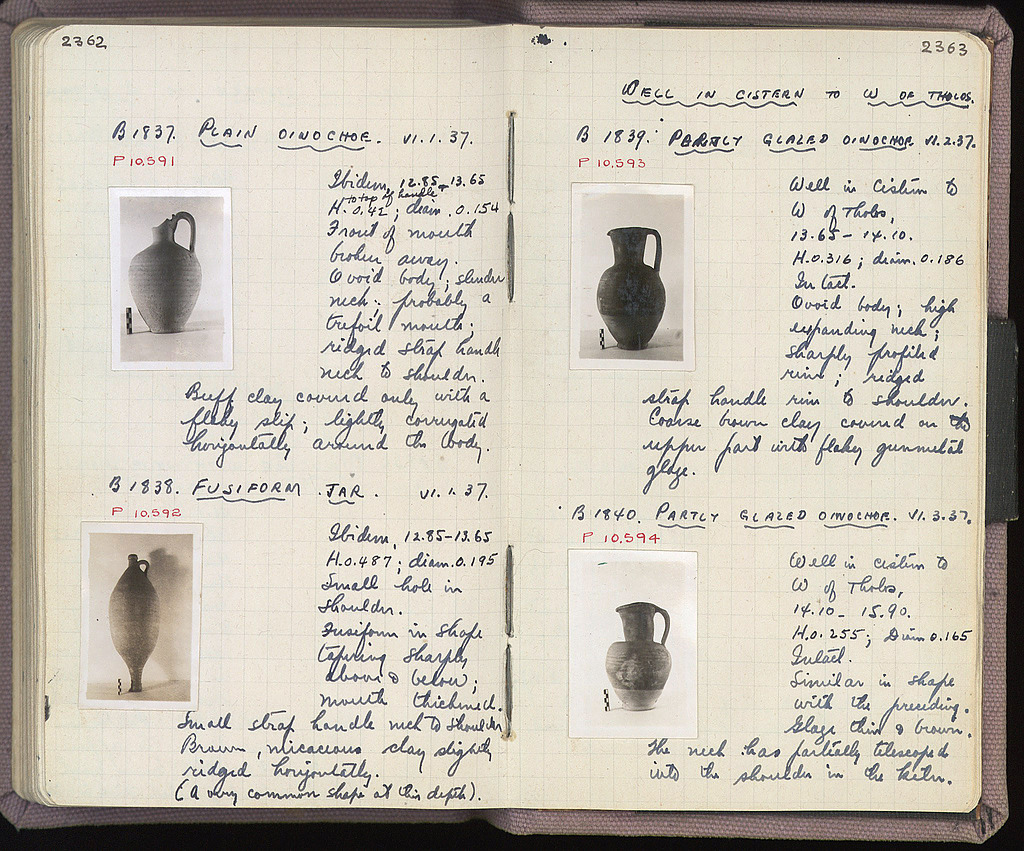 2362
B 1837. PLAIN OINOCHOE. VI.1.37.
P 10,591
Ibidem, 12.85-13.65
to top of handle
H. 0.42; diam. 0.154
Front of mouth
broken away.
Ovoid body; slender
neck; probably a
trefoil mouth;
ridged strap handle
neck to shoulder.
Buff clay covered only with a
flaky slip; lightly corrugated
horizontally around the body.
B 1838. FUSIFORM JAR. VI.1.37.
P 10,592
Ibidem, 12.85-13.65
H. 0.487; diam. 0.195
Small hole in
shoulder.
Fusiform in shape
tapering sharply
above & below;
mouth thickened.
Small strap handle neck to shoulder
Brown, micaceous clay slightly
ridged horizontally.
(A very common shape at this depth).
2363
WELL IN CISTERN TO W OF THOLOS.
B 1839. PARTLY GLAZED OINOCHOE VI.2.37.
P 10,593
Well in Cistern to
W of Tholos,
13.65 - 14.10.
H. 0.316; diam. 0.186
Intact.
Ovoid body; high
expanding neck;
sharply profiled
rim; ridged
strap handle rim to shoulder.
Coarse brown clay covered on
upper part with flaky gunmetal
glaze.
B 1840. PARTLY GLAZED OINOCHOE. VI.3.37.
P 10,594
Well in cistern to
W of Tholos,
14.10 - 15.90.
H. 0.255; Diam 0.165
Intact.
Similar in shape
with the preceding.
Glaze thin & brown.
The neck has partially telescoped
into the shoulder in the kiln.